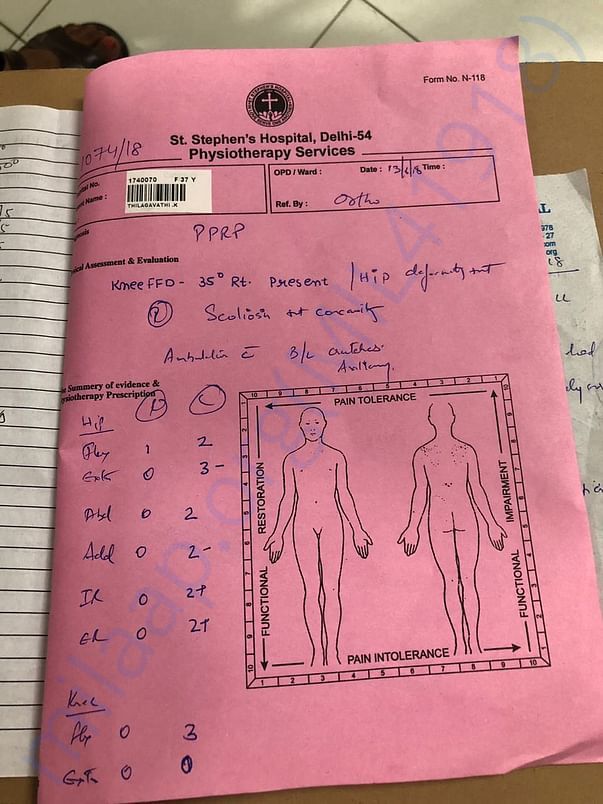 Form No. N-118
St. Stephen's Hospital, Delhi-54
Physiotherapy Services
1074/18
ital No.
1740070 F 37 Y
THILAGAVATHI .K
Name :
OPD / Ward : Date : 13/6/18 Time :
Ref. By : Ortho
nosis
PPRP
ical Assessment & Evaluation
Knee FFD - 35° Rt. Present / Hip deformity
Scoliosis concavity
Ambulation c̄ B/L crutches
Axillary.
e Summery of evidence &
ysiotherapy Prescription
Hip
Flex 1 2
Extn 0 3-
Abd 0 2
Add 0 2-
IR 0 2+
ER 0 2+
Knee
Flex 0 3
Extn 0
10 9 8 7 6 5 4 3 2 1
PAIN TOLERANCE
RESTORATION
FUNCTIONAL
IMPAIRMENT
FUNCTIONAL
PAIN INTOLERANCE
1 2 3 4 5 6 7 8 9 10
milaap.org(MIL41918)